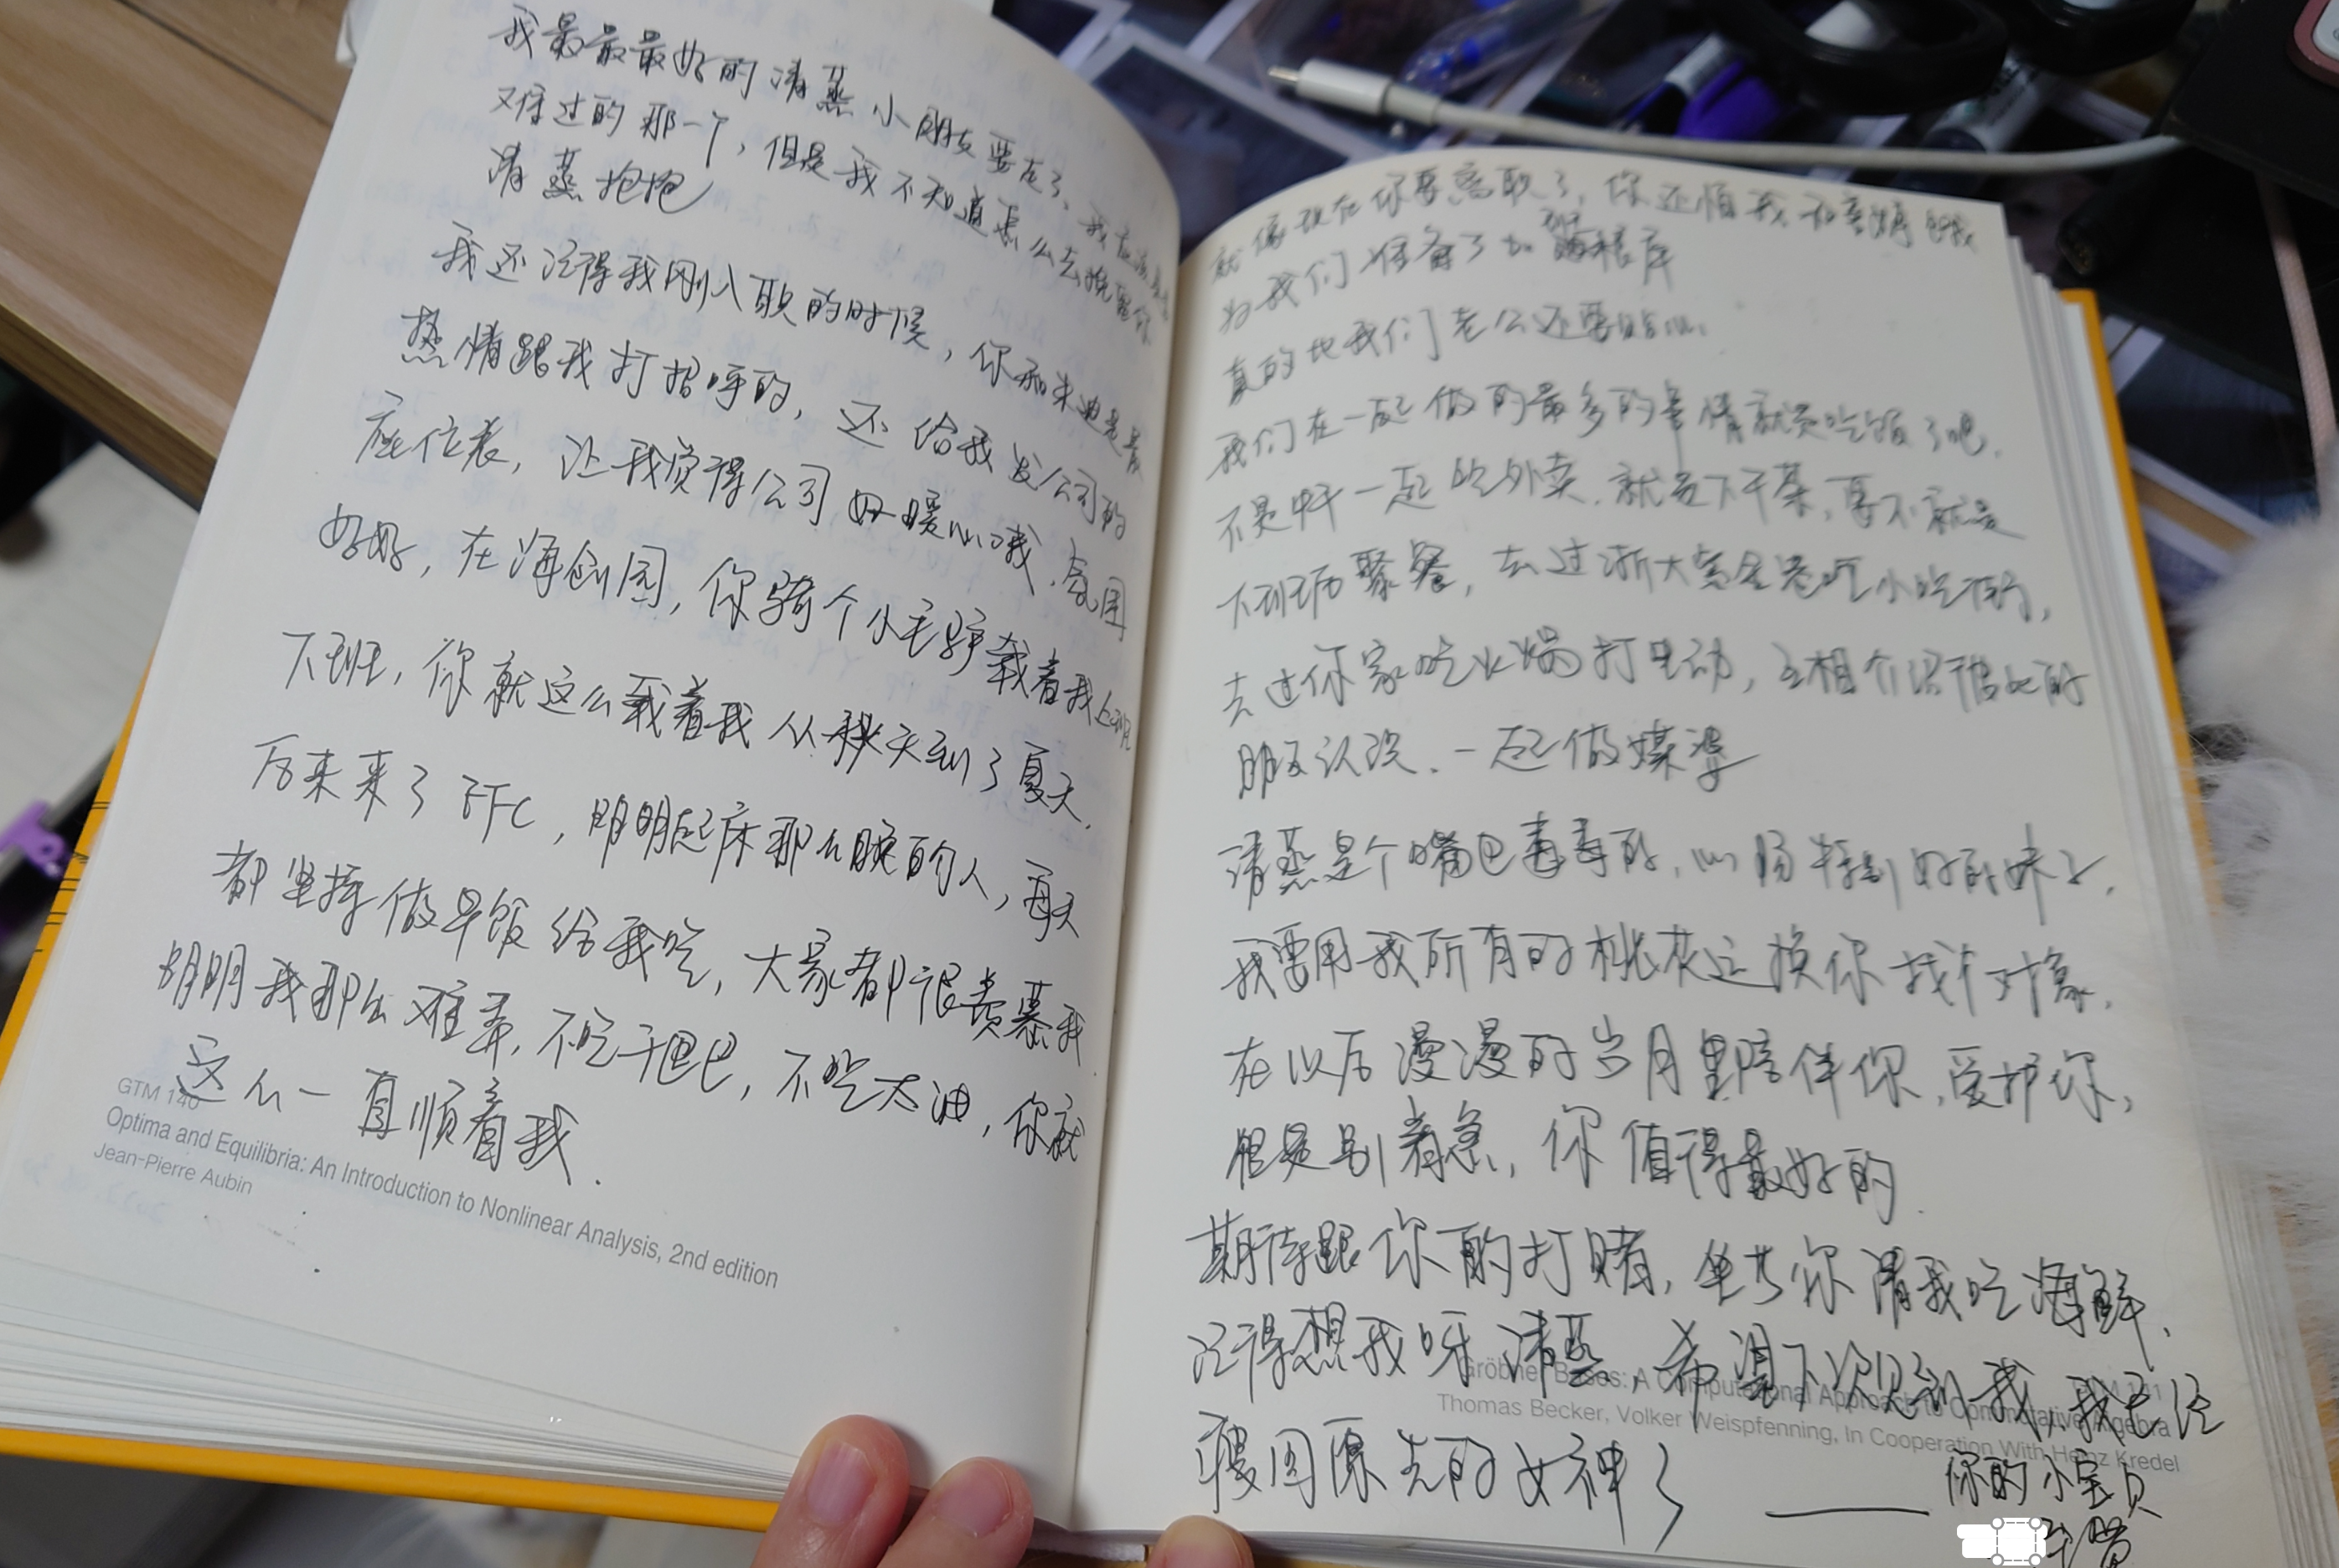 我最最最好的清蒸小朋友要走了、我应该是
难过的那一个，但是我不知道怎么去挽留你
清蒸抱抱
我还记得我刚入职的时候，你和朱迪是最
热情跟我打招呼的，还给我发公司的
座位表，让我觉得公司好暖心哦，氛围
好好，在海创园，你骑个小毛驴载着我上班
下班，你就这么载着我从秋天到了夏天.
后来来了EFC，明明起床那么晚的人，每天
都坚持做早饭给我吃，大家都很羡慕我
明明我那么难弄，不吃干巴巴，不吃太油，你就
这么一直顺着我.
GTM 140
Optima and Equilibria: An Introduction to Nonlinear Analysis, 2nd edition
Jean-Pierre Aubin
就像现在你要离职了，你还怕我
为我们准备了
真的比我们老公还要贴心.
我们在一起做的最多的事情就是吃饭了吧.
不是中午一起吃外卖，就是下午茶，要不就是
下班后聚餐，去过浙大吃小吃街，
去过你家吃火锅打电动，互相介绍彼此的
朋友认识、一起做媒婆
清蒸是个嘴巴毒毒的，心肠特别好的妹子，
我要用我所有的桃花运换你找个对象，
在以后漫漫的岁月里陪伴你，爱护你，
但是别着急，你值得最好的.
期待跟你的打赌，坐等你请我吃海鲜、
记得想我呀清蒸，希望下次见到我，我已经
Gröbner Bases: A Computational Approach to Commutative Algebra
Thomas Becker, Volker Weispfenning, In Cooperation With Heinz Kredel
瘦回原先的女神了
——你的小宝贝